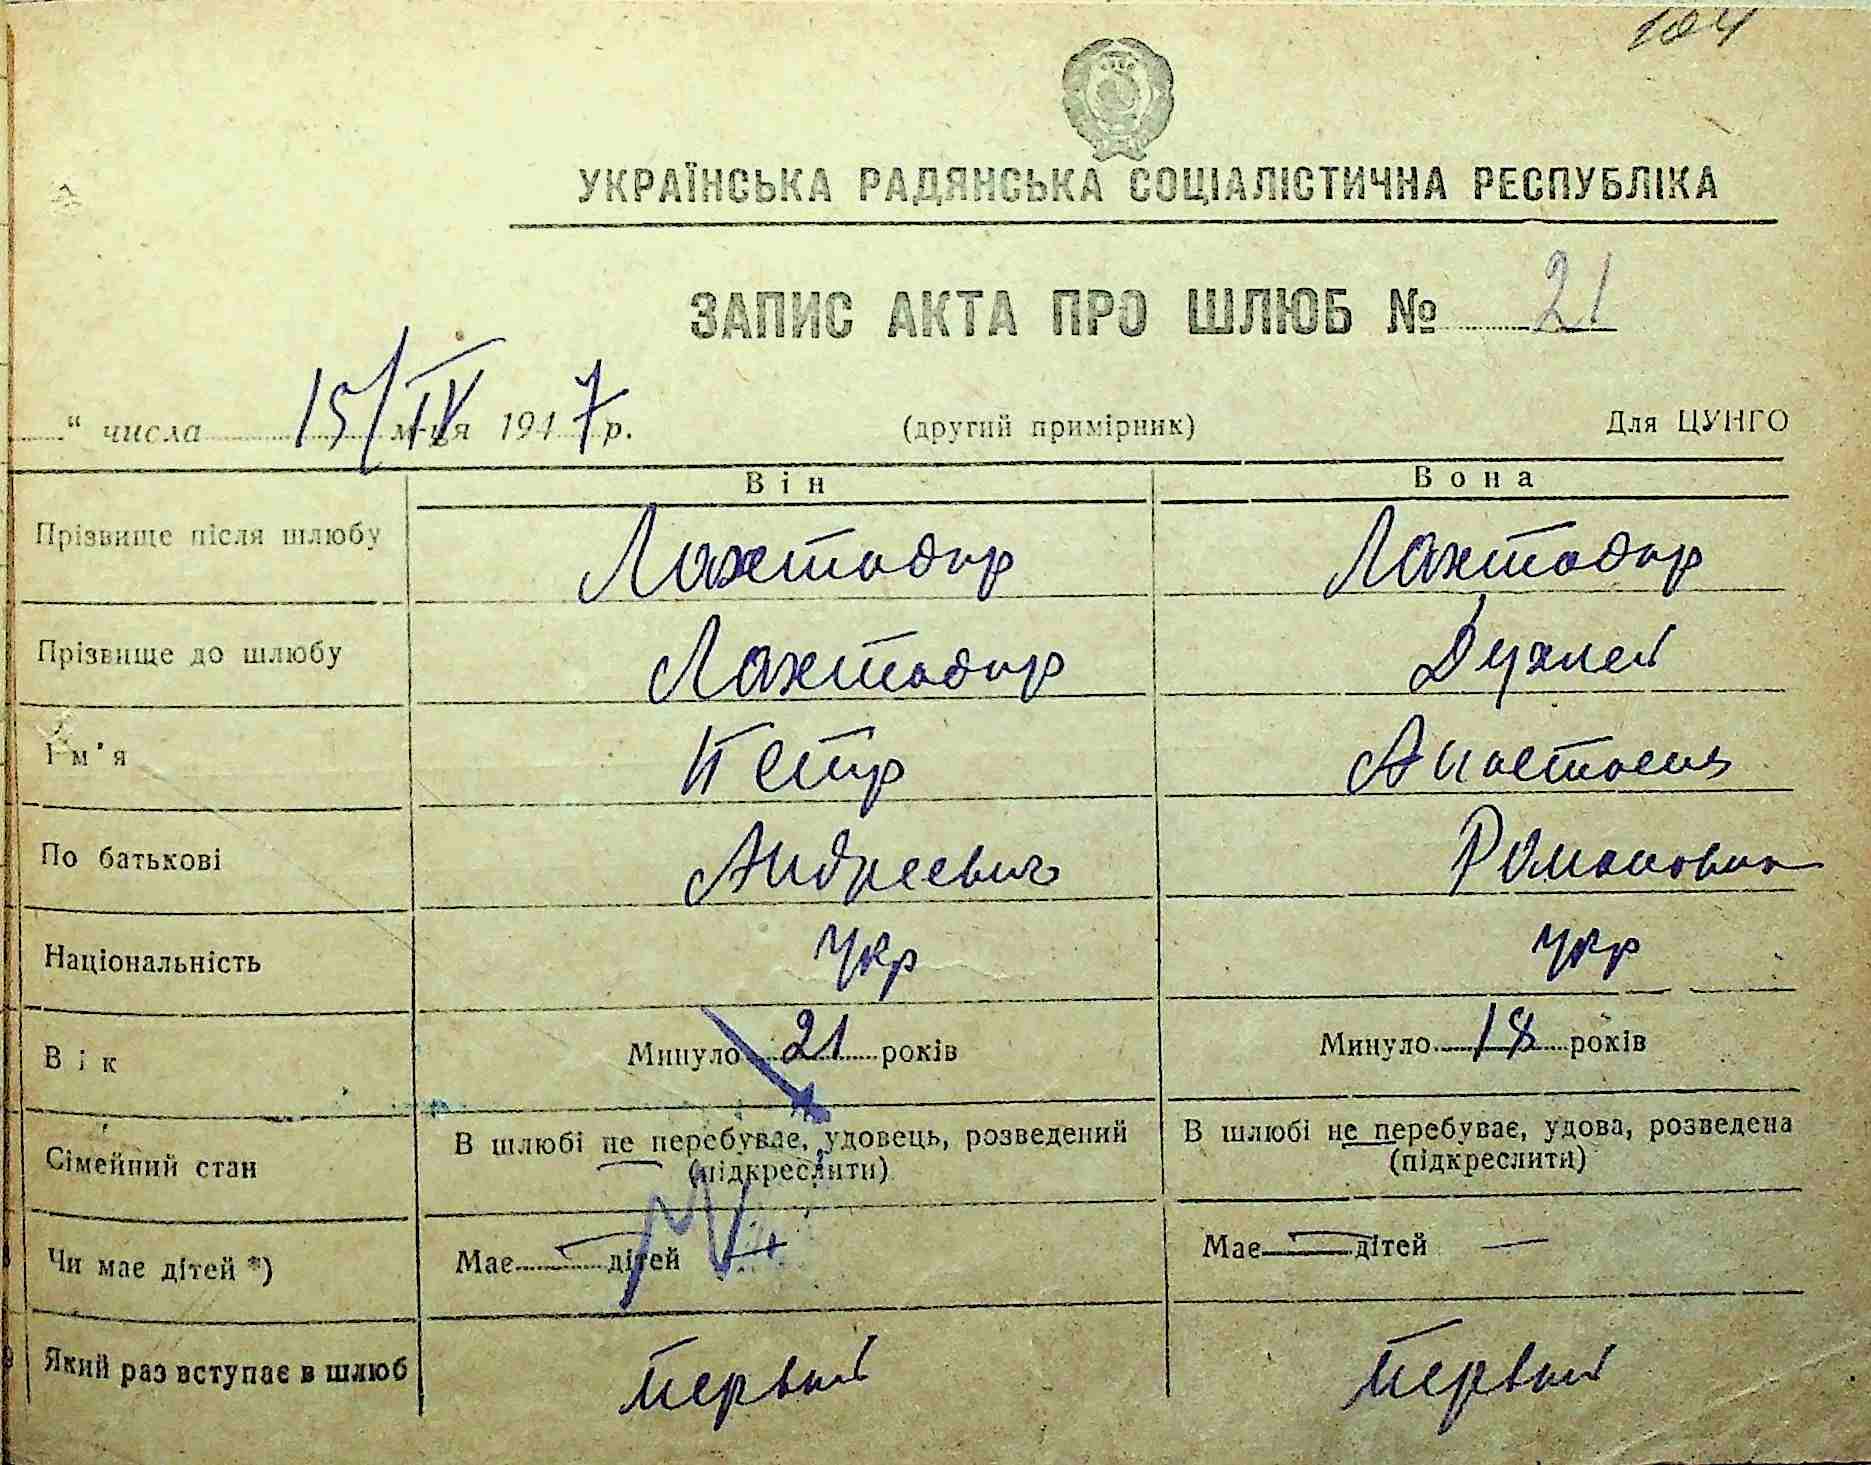 104
УКРАЇНСЬКА РАДЯНСЬКА СОЦІАЛІСТИЧНА РЕСПУБЛІКА
ЗАПИС АКТА ПРО ШЛЮБ № 21
“ числа 15/IV м-ця 1947 р. (другий примірник) Для ЦУНГО
Він Вона
Прізвище після шлюбу Лахтадир Лахтадир
Прізвище до шлюбу Лахтадир
Ім'я Петр Анастасия
По батькові Андреевич Романовна
Національність Укр Укр
Вік Минуло 21 років Минуло 18 років
Сімейний стан В шлюбі не перебуває, удовець, розведений (підкреслити) В шлюбі не перебуває, удова, розведена (підкреслити)
Чи має дітей *) Має — дітей Має — дітей —
Який раз вступає в шлюб Первый Первый